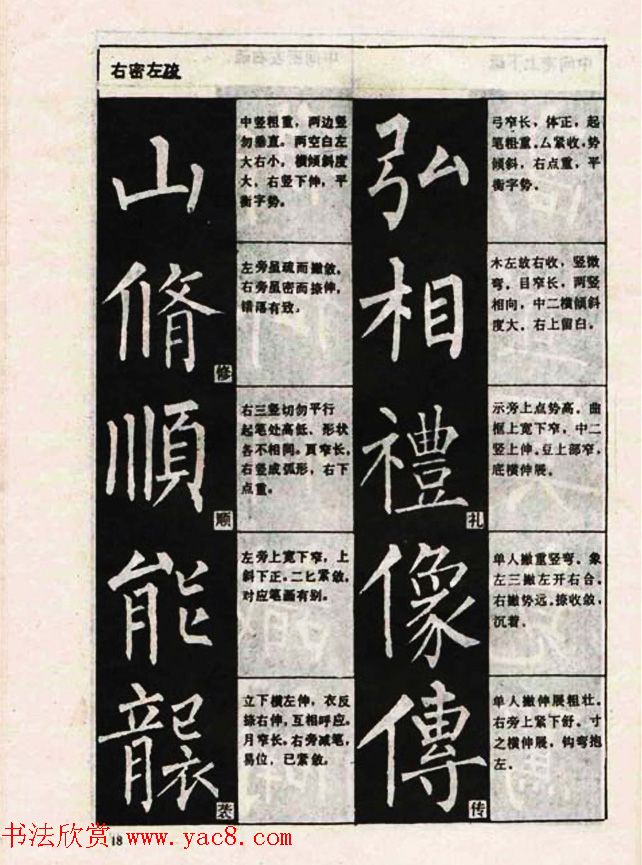 右密左疏
弘
弓窄长，体正，起
笔粗重。厶紧收，势
倾斜，右点重，平
衡字势。
相
木左放右收，竖微
弯。目窄长，两竖
相向，中二横倾斜
度大。右上留白。
禮
礼
示旁上点势高。曲
框上宽下窄，中二
竖上伸。豆上部窄，
底横伸展。
像
单人撇重竖弯。象
左三撇左开右合。
右撇势远。捺收敛，
沉着。
傳
传
单人撇伸展粗壮。
右旁上紧下舒。寸
之横伸展，钩弯抱
左。
山
中竖粗重，两边竖
勿垂直。两空白左
大右小，横倾斜度
大，右竖下伸，平
衡字势。
脩
修
左旁虽疏而撇敛。
右旁虽密而捺伸，
错落有致。
順
顺
右三竖切勿平行
起笔处高低、形状
各不相同。頁窄长，
右竖成弧形，右下
点重。
能
左旁上宽下窄，上
斜下正。二匕紧敛，
对应笔画有别。
襲
袭
立下横左伸，衣反
捺右伸，互相呼应。
月窄长。右旁减笔，
易位，已紧敛。
18
书法欣赏 www.yac8.com